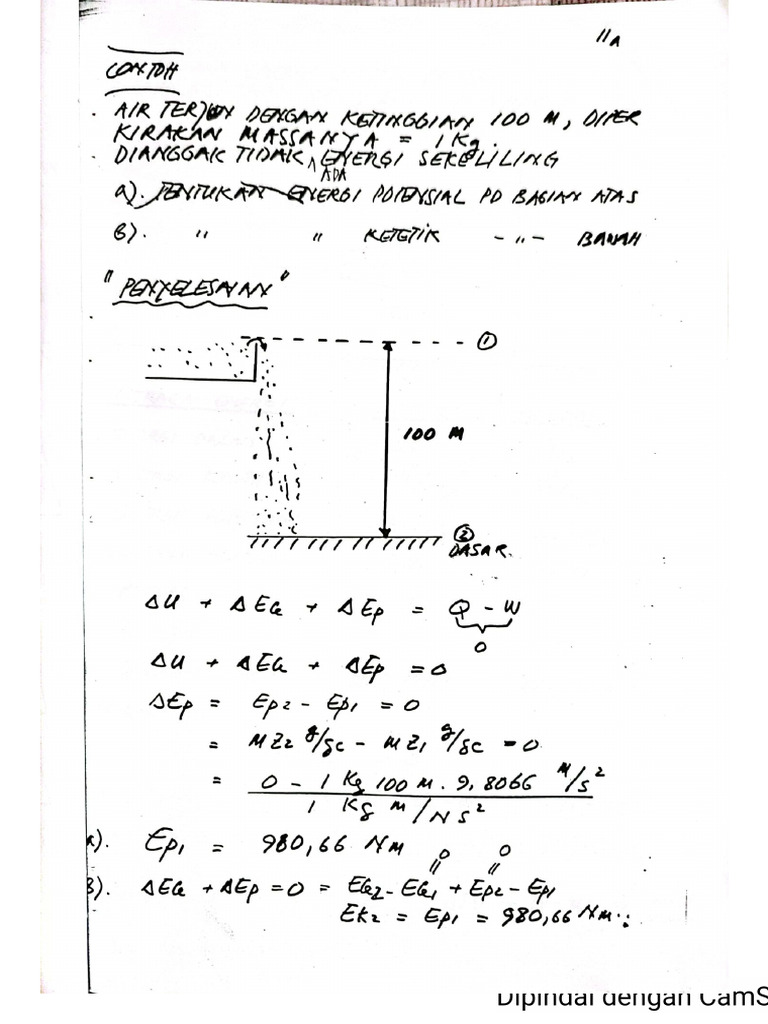 11A
CONTOH
. AIR TERJUN DENGAN KETINGGIAN 100 M, DIPER
KIRAKAN MASSANYA = 1 Kg.
. DIANGGAK TIDAK ADA ENERGI SEKELILING
a). TENTUKAN ENERGI POTENSIAL PD BAGIAN ATAS
B). " " KETETIK - " - BAWAH
"PENYELESAIAN"
①
100 M
②
DASAR.
ΔU + ΔEk + ΔEp = Q - W
0
ΔU + ΔEk + ΔEp = 0
ΔEp = Ep2 - Ep1 = 0
= MZ2 g/gc - MZ1 g/gc = 0
= 0 - 1 Kg 100 M . 9,8066 M/s²
1 Kg m/N s²
a). Ep1 = 980,66 NM
0 0
B). ΔEk + ΔEp = 0 = Ek2 - Ek1 + Ep2 - Ep1
Ek2 = Ep1 = 980,66 NM.
Dipindai dengan CamS